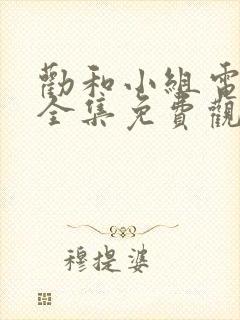 勸和小組電
全集免費觀
穆提婆